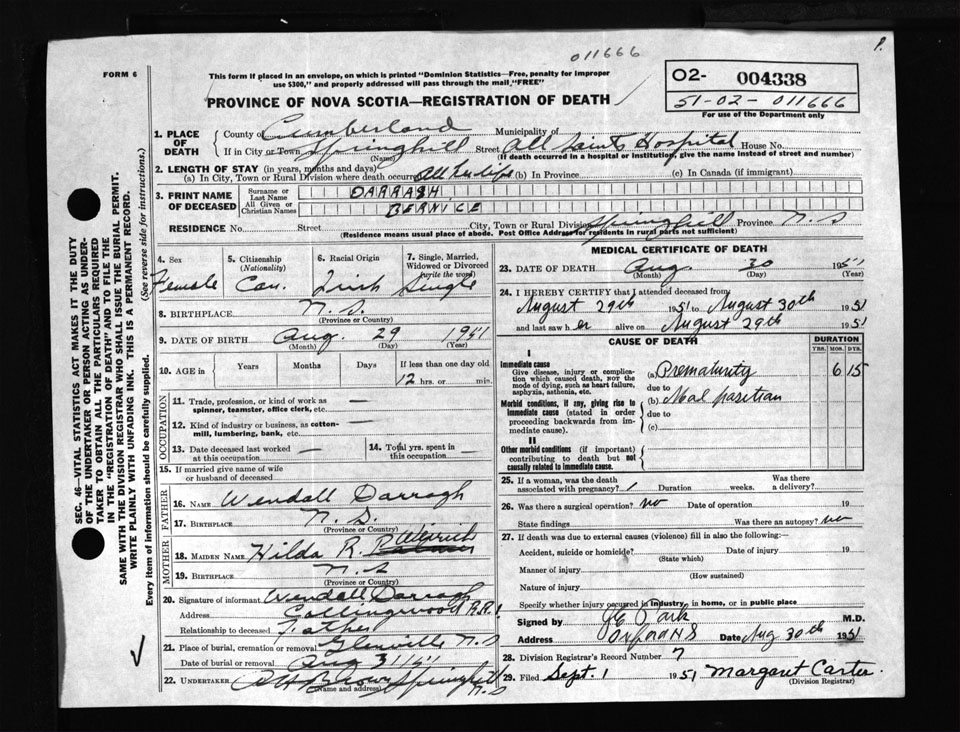 P.
011666
FORM 6
This form if placed in an envelope, on which is printed "Dominion Statistics—Free, penalty for improper
use $300," and properly addressed will pass through the mail "FREE"
02- 004338
51-02-011666
For use of the Department only
PROVINCE OF NOVA SCOTIA—REGISTRATION OF DEATH
1. PLACE OF DEATH
County of Cumberland Municipality of
If in City or Town Springhill Street All Saints Hospital House No.
(Name) (If death occurred in a hospital or institution, give the name instead of street and number)
2. LENGTH OF STAY (in years, months and days)
(a) In City, Town or Rural Division where death occurred All her life (b) In Province (c) In Canada (if immigrant)
3. PRINT NAME OF DECEASED
Surname or Last Name DARRAGH,
All Given or Christian Names BERNICE
RESIDENCE No. Street City, Town or Rural Division Springhill Province N.S
(Residence means usual place of abode. Post Office Address for residents in rural parts not sufficient)
4. Sex Female
5. Citizenship (Nationality) Can.
6. Racial Origin Irish
7. Single, Married, Widowed or Divorced (write the word) Single
8. BIRTHPLACE N.S.
(Province or Country)
9. DATE OF BIRTH Aug. 29 1951
(Month) (Day) (Year)
10. AGE in Years Months Days If less than one day old
12 hrs. or min.
OCCUPATION
11. Trade, profession, or kind of work as spinner, teamster, office clerk, etc. —
12. Kind of industry or business, as cotton-mill, lumbering, bank, etc. —
13. Date deceased last worked at this occupation —
14. Total yrs. spent in this occupation —
15. If married give name of wife or husband of deceased
FATHER
16. NAME Wendall Darragh
17. BIRTHPLACE N.S.
(Province or Country)
MOTHER
18. MAIDEN NAME Hilda R.
19. BIRTHPLACE N.S
(Province or Country)
20. Signature of informant Wendall Darragh
Address Collingwood R.R.1
Relationship to deceased Father
21. Place of burial, cremation or removal Glenville N.S
Date of burial or removal Aug 31/51
22. UNDERTAKER Brown Springhill N.S
(Name and address)
MEDICAL CERTIFICATE OF DEATH
23. DATE OF DEATH Aug. 30 1951
(Month) (Day) (Year)
24. I HEREBY CERTIFY that I attended deceased from
August 29th 1951 to August 30th 1951
and last saw her alive on August 29th 1951
CAUSE OF DEATH DURATION
YRS. MOS. DYS.
I
Immediate cause
Give disease, injury or complication which caused death, NOT the mode of dying, such as heart failure, asphyxia, asthenia, etc.
(a) Prematurity 6 15
due to
Morbid conditions, if any, giving rise to immediate cause (stated in order proceeding backwards from immediate cause).
(b) Mal position
due to
(c)
II
Other morbid conditions (if important) contributing to death but not causally related to immediate cause.
25. If a woman, was the death associated with pregnancy? Duration weeks. Was there a delivery?
26. Was there a surgical operation? no Date of operation 19
State findings Was there an autopsy? no
27. If death was due to external causes (violence) fill in also the following:
Accident, suicide or homicide? Date of injury 19
(State which)
Manner of injury
(How sustained)
Nature of injury
Specify whether injury occurred in industry, in home, or in public place
Signed by Park M.D.
Address Oxford NS Date Aug 30th 1951
28. Division Registrar's Record Number 7
29. Filed Sept. 1 1951 Margaret Carter
(Division Registrar)
SEC. 46—VITAL STATISTICS ACT MAKES IT THE DUTY
OF THE UNDERTAKER OR PERSON ACTING AS UNDER-
TAKER TO OBTAIN ALL THE PARTICULARS REQUIRED
IN THE "REGISTRATION OF DEATH" AND TO FILE THE
SAME WITH THE DIVISION REGISTRAR WHO SHALL ISSUE THE BURIAL PERMIT.
WRITE PLAINLY WITH UNFADING INK. THIS IS A PERMANENT RECORD.
Every item of information should be carefully supplied. (See reverse side for instructions.)